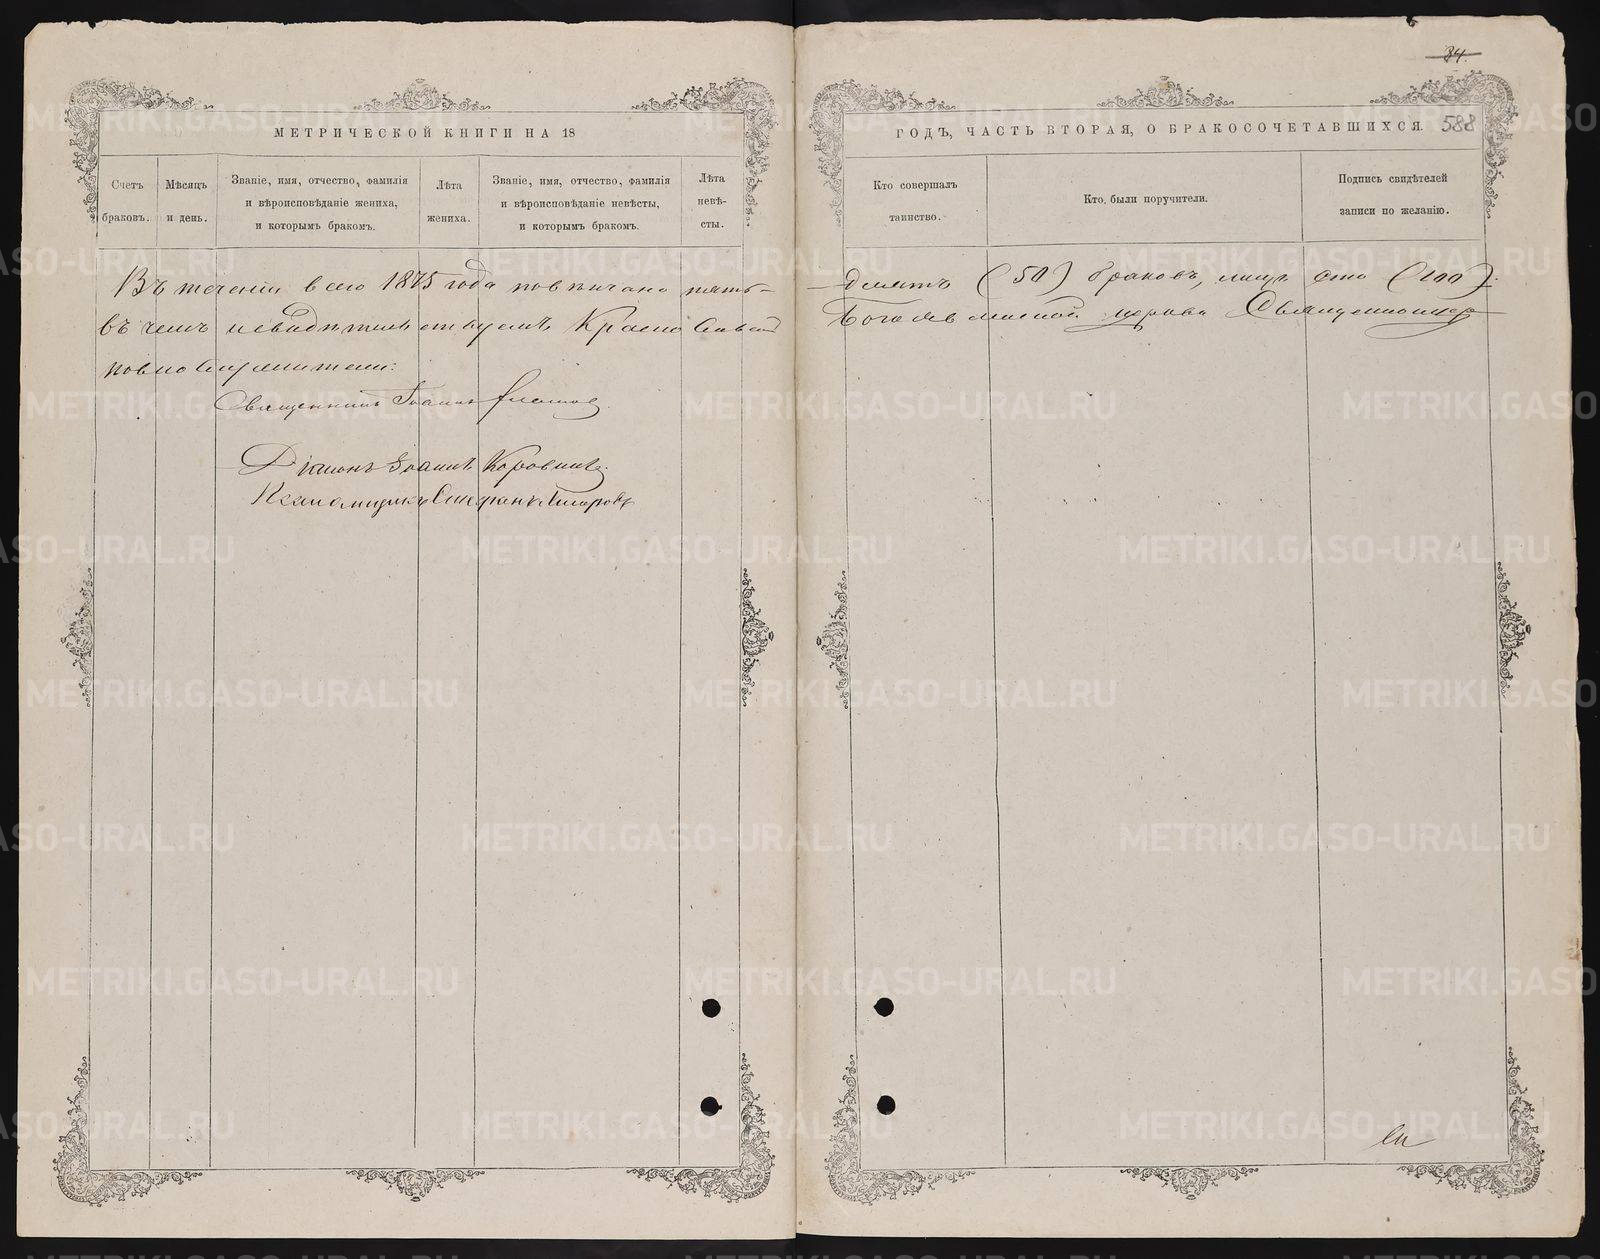 34.
МЕТРИЧЕСКОЙ КНИГИ НА 18
ГОДЪ, ЧАСТЬ ВТОРАЯ, О БРАКОСОЧЕТАВШИХСЯ.
588
Счетъ браковъ.
Мѣсяцъ и день.
Званіе, имя, отчество, фамилія и вѣроисповѣданіе жениха, и которымъ бракомъ.
Лѣта жениха.
Званіе, имя, отчество, фамилія и вѣроисповѣданіе невѣсты, и которымъ бракомъ.
Лѣта невѣсты.
Кто совершалъ таинство.
Кто были поручители.
Подпись свидѣтелей записи по желанію.
Въ теченіи всего 1875 года повѣнчано пять-
десятъ (50) браковъ, лицъ сто (100).
въ чемъ и свидѣтельствуемъ Красно
Богоявленской церкви Священно
Священникъ Іоаннъ
Діаконъ Іоаннъ Коровинъ.
Псаломщикъ Стефанъ
METRIKI.GASO-URAL.RU